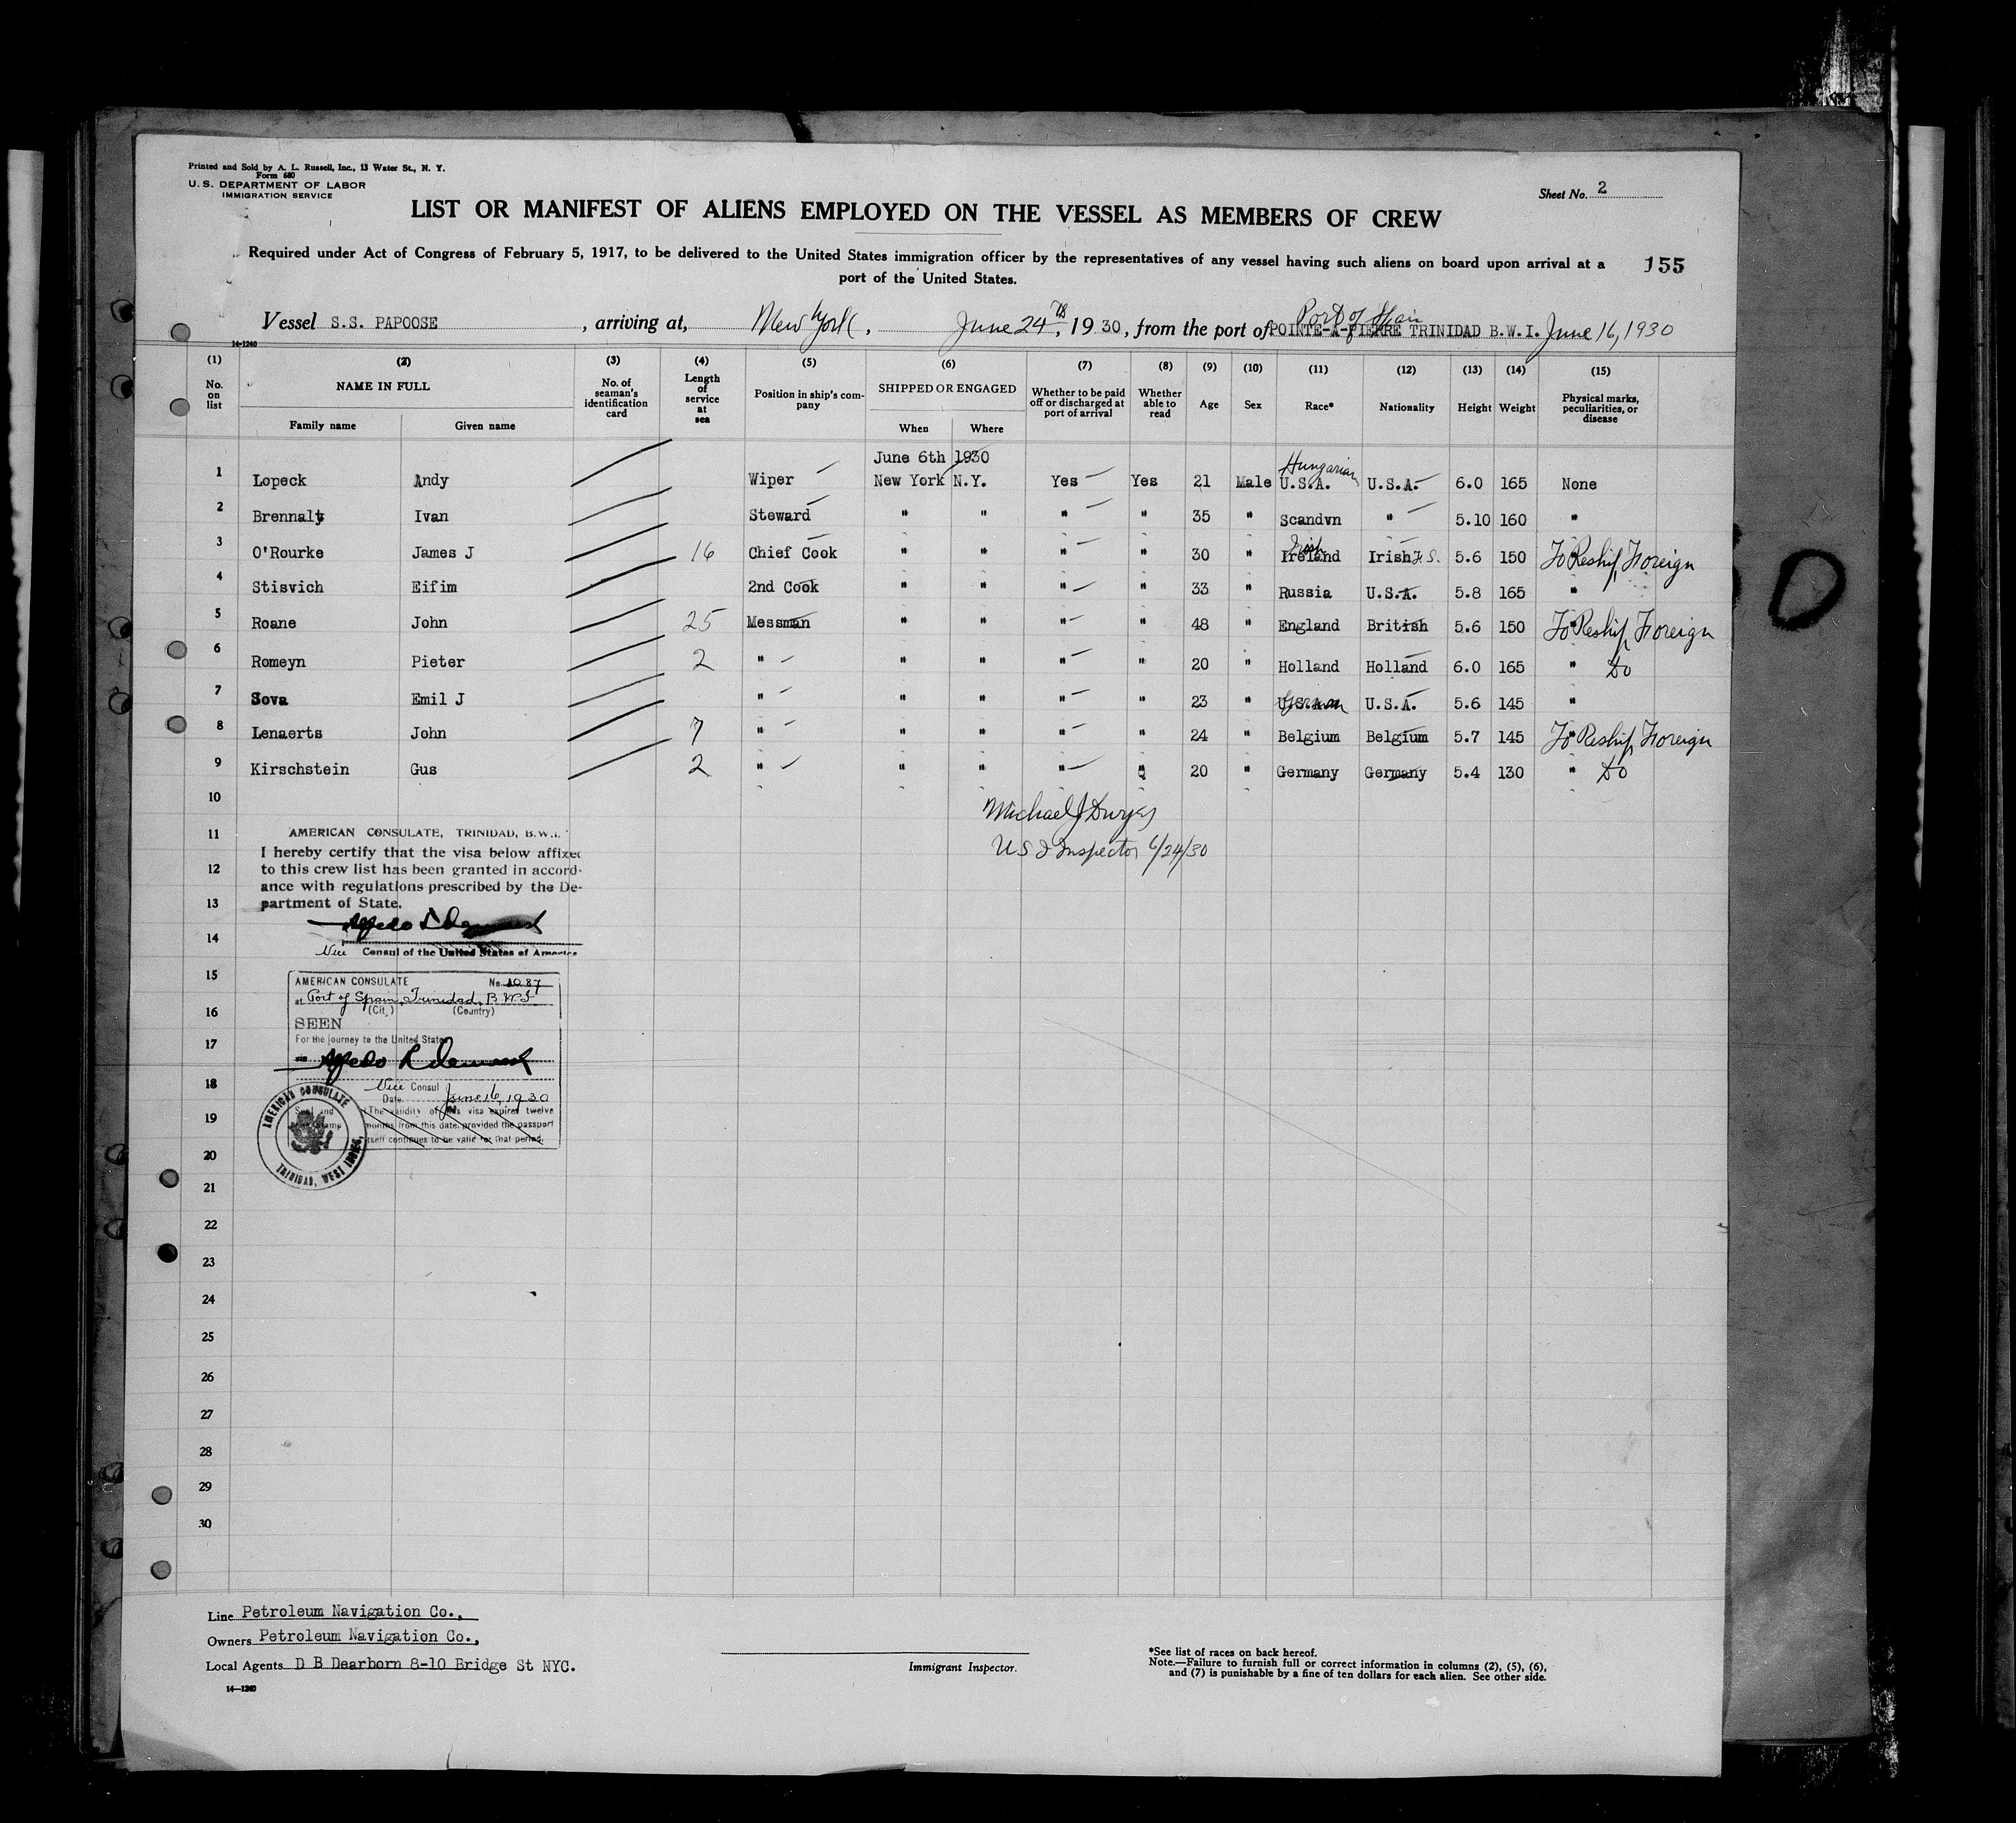 Printed and Sold by A. L. Russell, Inc., 13 Water St., N. Y.
Form 680
U. S. DEPARTMENT OF LABOR
IMMIGRATION SERVICE
Sheet No. 2
LIST OR MANIFEST OF ALIENS EMPLOYED ON THE VESSEL AS MEMBERS OF CREW
Required under Act of Congress of February 5, 1917, to be delivered to the United States immigration officer by the representatives of any vessel having such aliens on board upon arrival at a
port of the United States.
155
Port of Spain
Vessel S.S. PAPOOSE, arriving at, New York, June 24th, 1930, from the port of POINTE-A-PIERRE TRINIDAD B.W.I. June 16, 1930
14-1240
(1) (2) (3) (4) (5) (6) (7) (8) (9) (10) (11) (12) (13) (14) (15)
No. on list NAME IN FULL No. of seaman's identification card Length of service at sea Position in ship's company SHIPPED OR ENGAGED Whether to be paid off or discharged at port of arrival Whether able to read Age Sex Race* Nationality Height Weight Physical marks, peculiarities, or disease
Family name Given name When Where
June 6th 1930
Hungarian
1 Lopeck Andy Wiper New York N.Y. Yes Yes 21 Male U.S.A. U.S.A. 6.0 165 None
2 Brennalt Ivan Steward " " " " 35 " Scandvn " 5.10 160 "
Irish
3 O'Rourke James J 16 Chief Cook " " " " 30 " Ireland Irish F.S. 5.6 150 " To Reship Foreign
4 Stisvich Eifim 2nd Cook " " " " 33 " Russia U.S.A. 5.8 165 "
5 Roane John 25 Messman " " " " 48 " England British 5.6 150 " To Reship Foreign
6 Romeyn Pieter 2 " " " " " 20 " Holland Holland 6.0 165 " Do
7 Sova Emil J " " " " " 23 " U.S.A. German U.S.A. 5.6 145 "
8 Lenaerts John 7 " " " " " 24 " Belgium Belgium 5.7 145 " To Reship Foreign
9 Kirschstein Gus 2 " " " " " 20 " Germany Germany 5.4 130 " Do
10
Michael J Dwyer
11
US I Inspector 6/24/30
12
13
14
15
16
17
18
19
20
21
22
23
24
25
26
27
28
29
30
AMERICAN CONSULATE, TRINIDAD, B.W.I.
I hereby certify that the visa below affixed
to this crew list has been granted in accord-
ance with regulations prescribed by the De-
partment of State.
Vice Consul of the United States of America
AMERICAN CONSULATE No. 1087
at Port of Spain, Trinidad, B.W.I.
(City) (Country)
SEEN
For the journey to the United States
Vice Consul
Date June 16, 1930
(The validity of this visa expires twelve
months from this date, provided the passport
itself continues to be valid for that period.
Seal and
Stamp
AMERICAN CONSULATE
TRINIDAD, WEST INDIES
Line Petroleum Navigation Co.,
Owners Petroleum Navigation Co.,
Local Agents D B Dearborn 8-10 Bridge St NYC.
14-1240
Immigrant Inspector.
*See list of races on back hereof.
Note.—Failure to furnish full or correct information in columns (2), (5), (6),
and (7) is punishable by a fine of ten dollars for each alien. See other side.